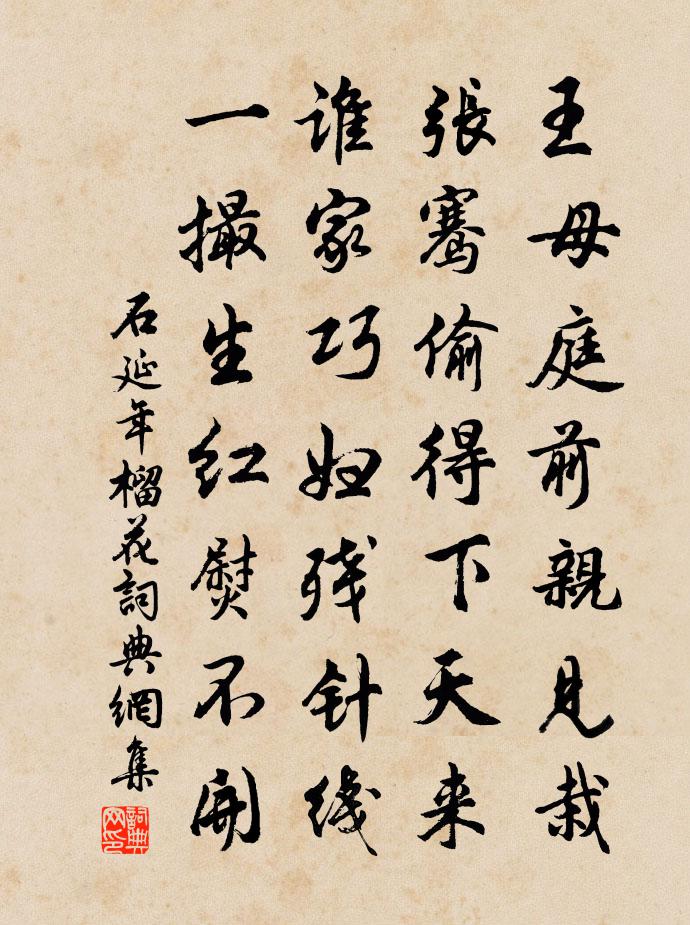 王母庭前親見栽
張騫偷得下天来
谁家巧妇残针线
一撮生红熨不開
石延年榴花詞典網集
詞典网印